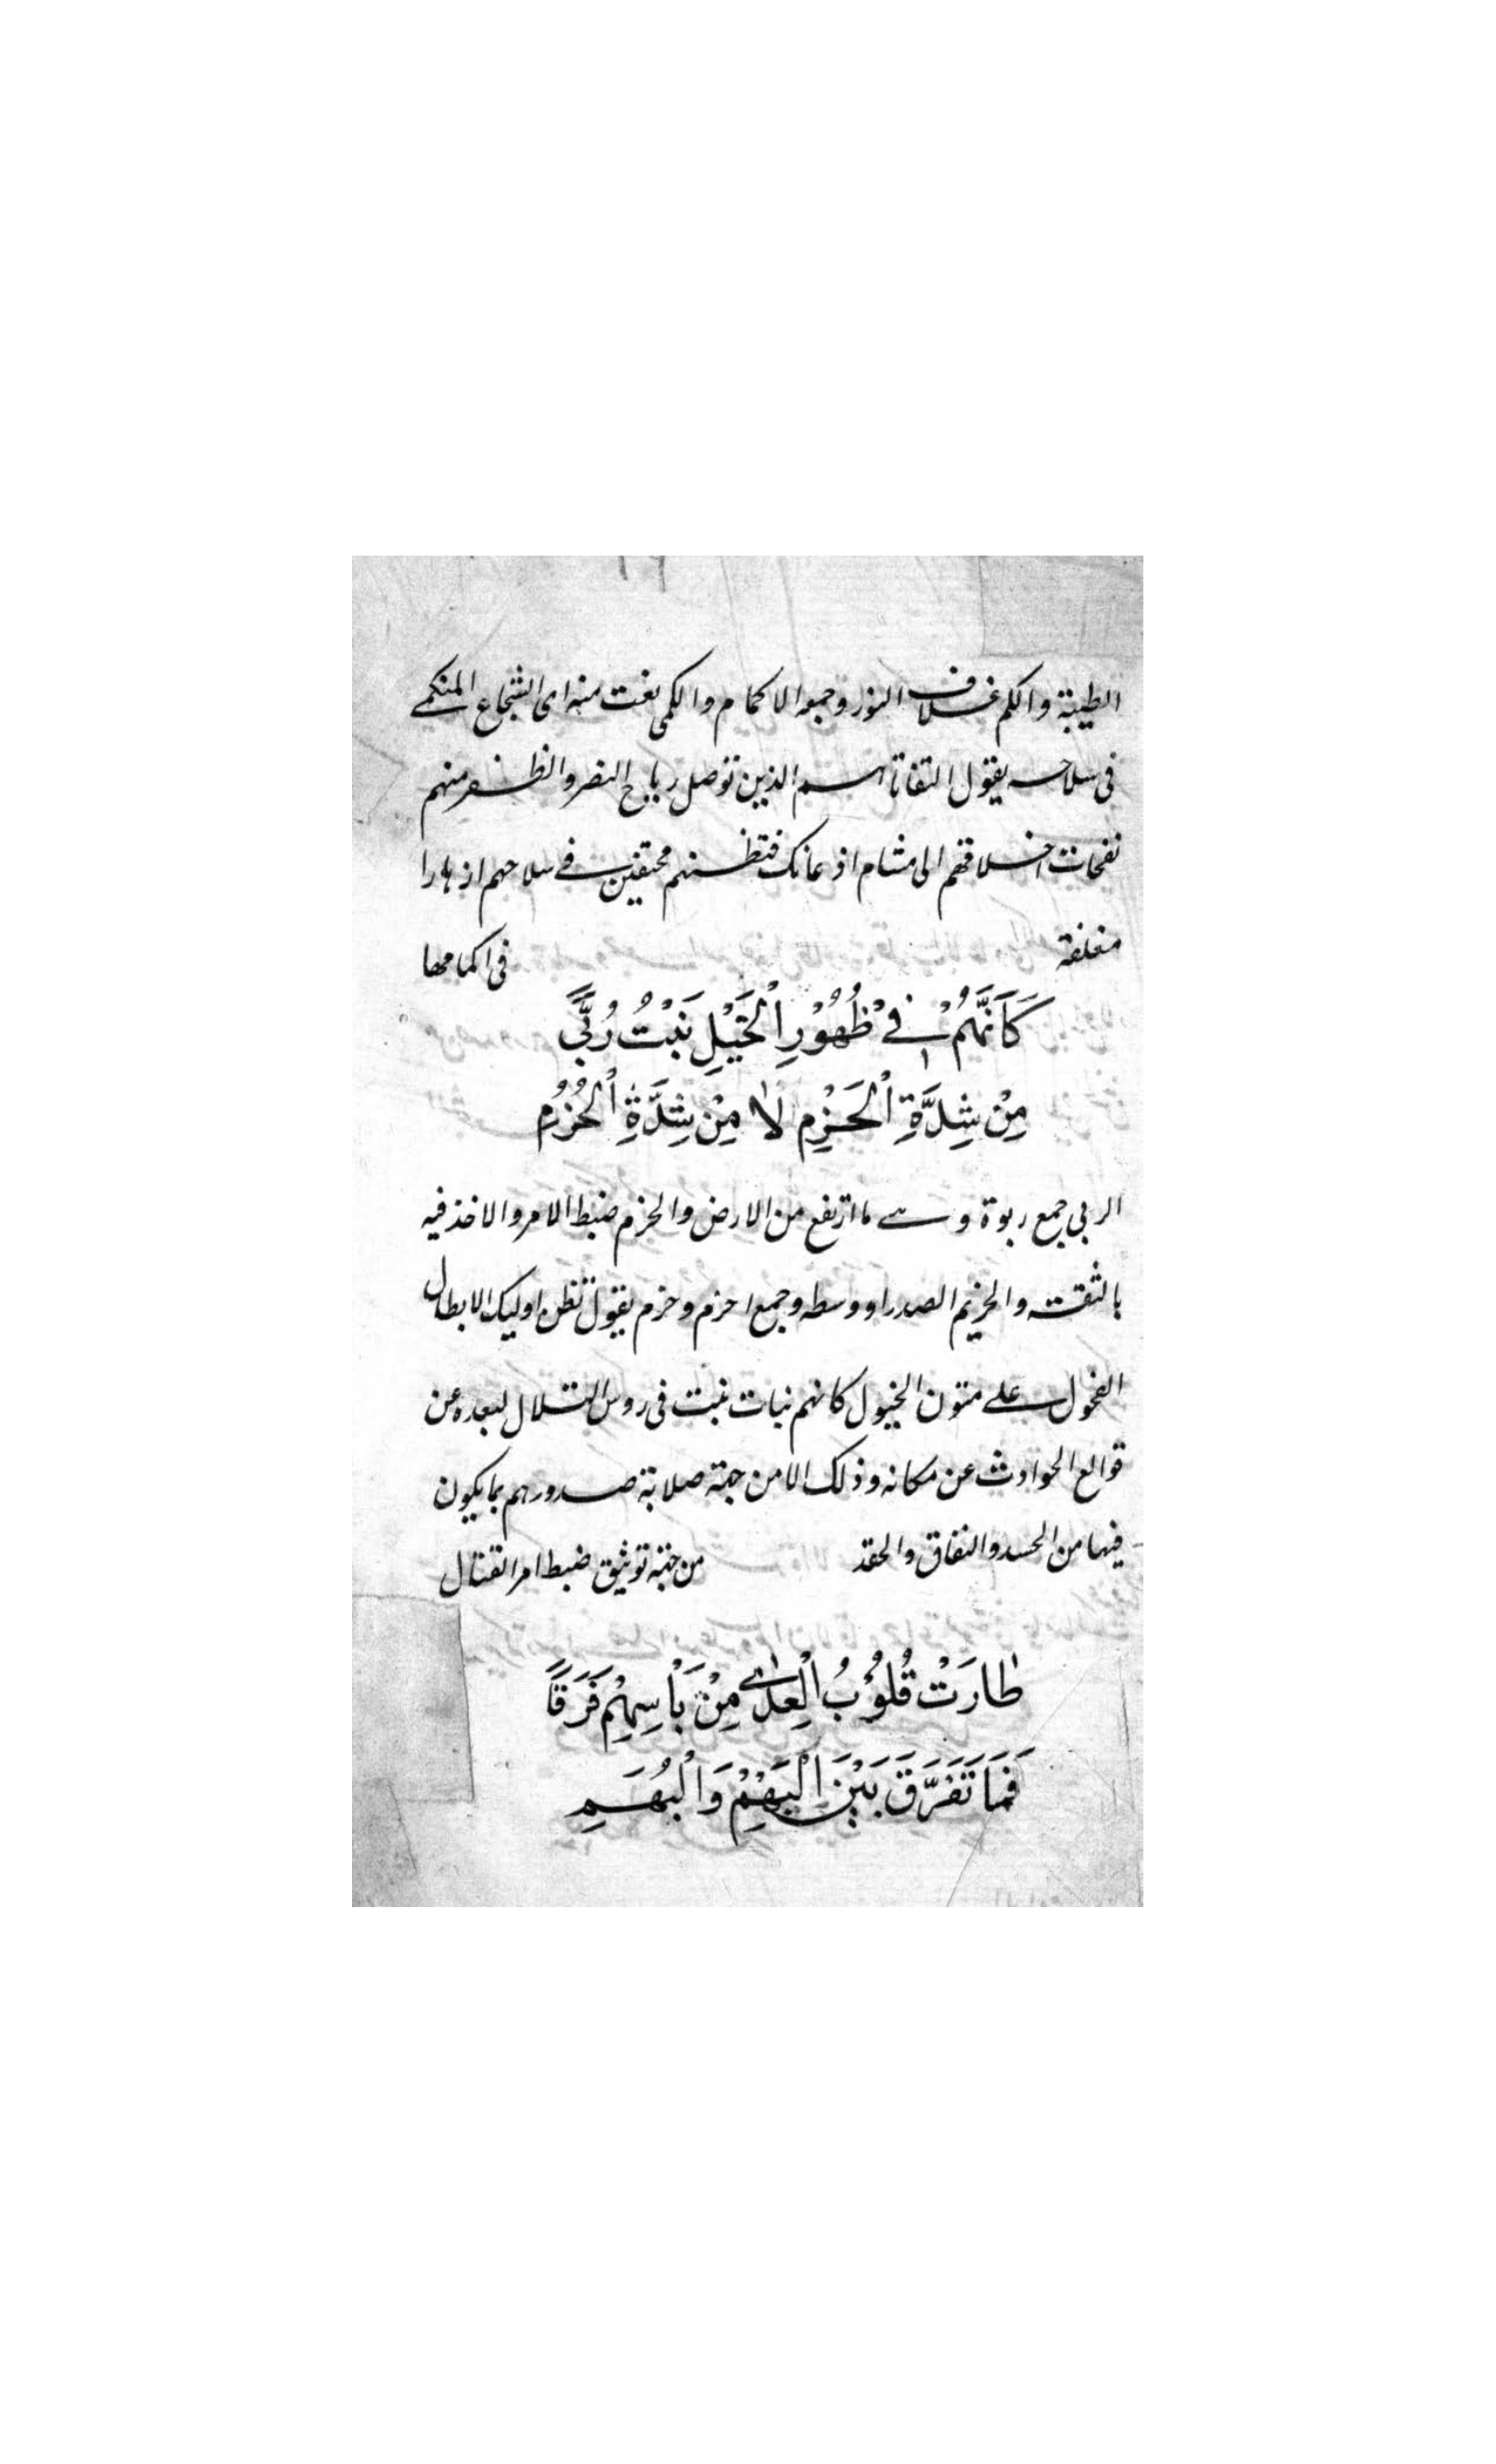 الطيبة والكم غلاف النور وجمعه الاكمام والكمى نعت منه اى الشجاع المتكمے
فى سلاحه يقول التفاتا هم الذين توصل رياح النصر والظفر منهم
نفحات اخلاقهم الى مشام اذعانك فتظنهم محتفين فے سلاحهم ازهارا
مغلفة فى اكمامها
كَاَنَّهُمْ فِے ظُهُوْرِ الْخَيْلِ نَبْتُ رُبًّى
مِنْ شِدَّةِ الْحَزْمِ لَا مِنْ شِدَّةِ الْحُزُمِ
الربى جمع ربوة وهے ما ارتفع من الارض والحزم ضبط الامر والاخذ فيه
بالثقت والحزيم الصدر او وسطه وجمع احزم وحزم يقول تظن اوليك الابطال
الفحول علے متون الخيول كانهم نبات نبت فى روس التلال لبعده عن
قوالع الحوادث عن مكانه وذلك لا من جهة صلابة صدورهم بما يكون
فيها من الحسد والنفاق والحقد من جهة توثيق ضبط امر القتال
طَارَتْ قُلُوْبُ الْعِدٰے مِنْ بَاْسِهِمْ فَرَقًا
فَمَا تَفَرَّقَ بَيْنَ الْبَهْمِ وَالْبُهَمِ